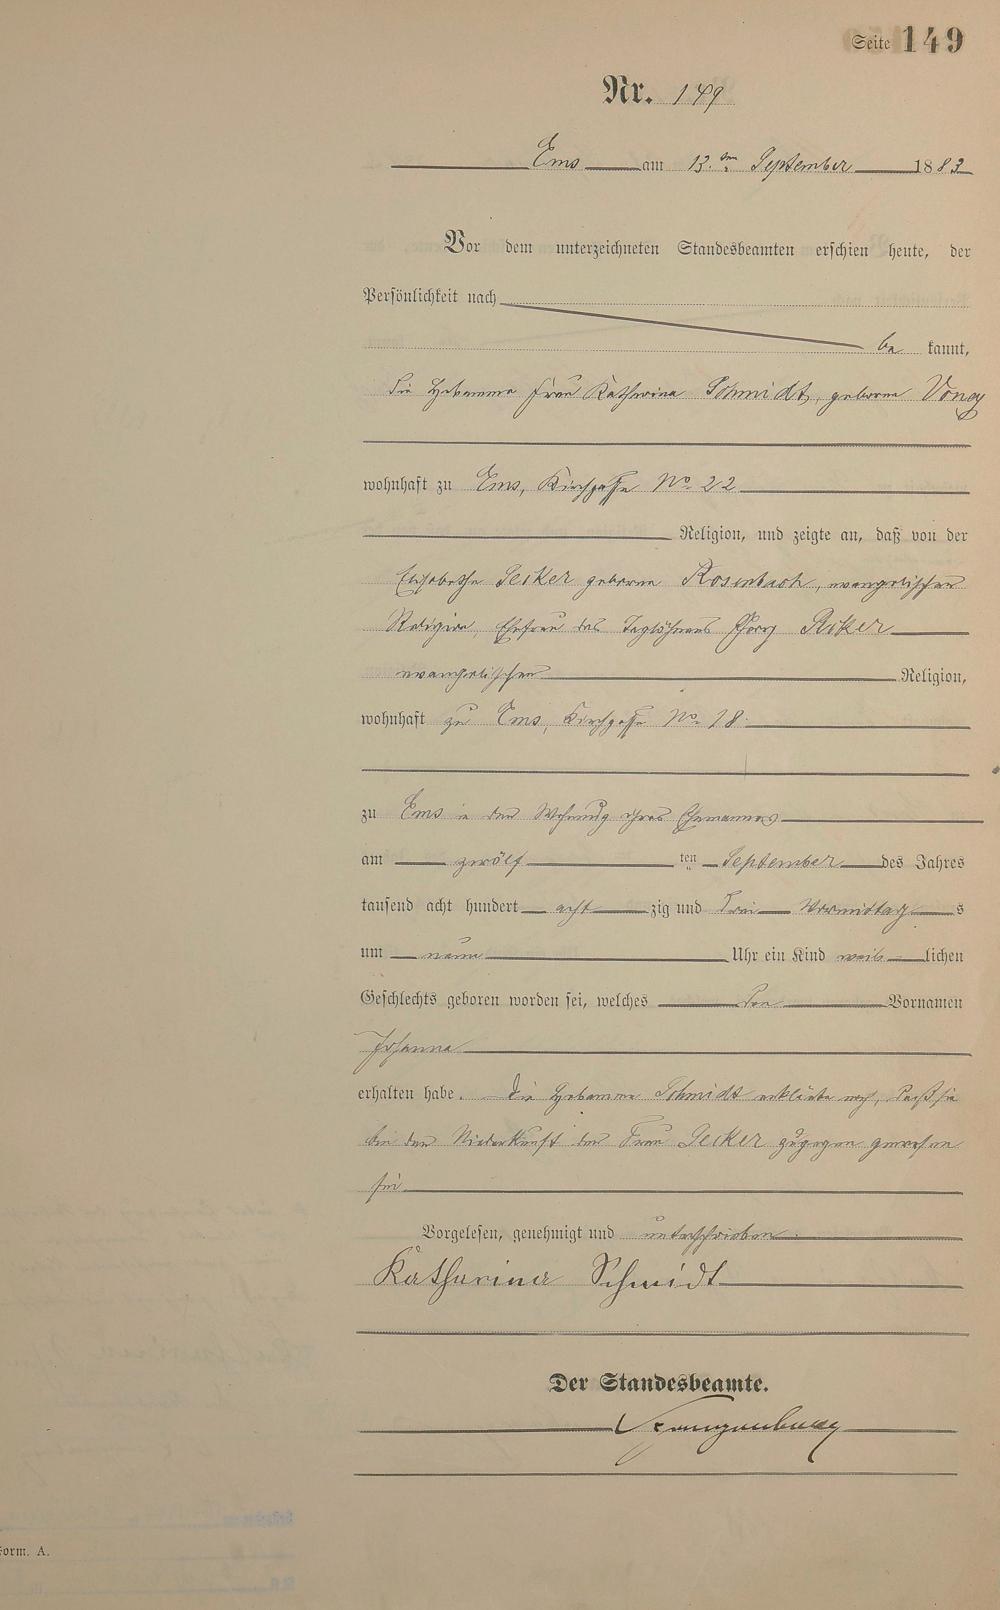 Seite 149
Nr. 149
Ems am 13.ten September 1883
Vor dem unterzeichneten Standesbeamten erschien heute, der
Persönlichkeit nach
be kannt,
die Hebamme Frau Katharina Schmidt, geborne
wohnhaft zu Ems, Kirchgasse No 22
Religion, und zeigte an, daß von der
Elisabethe geborne Rosenbach, evangelischer
Religion, Ehefrau des Taglöhners
evangelischer Religion,
wohnhaft zu Ems, Kirchgasse No 18.
zu Ems in der Wohnung ihres Ehemannes
am zwölf ten September des Jahres
tausend acht hundert acht zig und drei Vormittag s
um neun Uhr ein Kind weib lichen
Geschlechts geboren worden sei, welches den Vornamen
Johanna
erhalten habe. Die Hebamme Schmidt erklärte noch, daß sie
bei der Niederkunft der Frau zugegen gewesen
sei.
Vorgelesen, genehmigt und unterschrieben.
Katharina Schmidt
Der Standesbeamte.
Form. A.